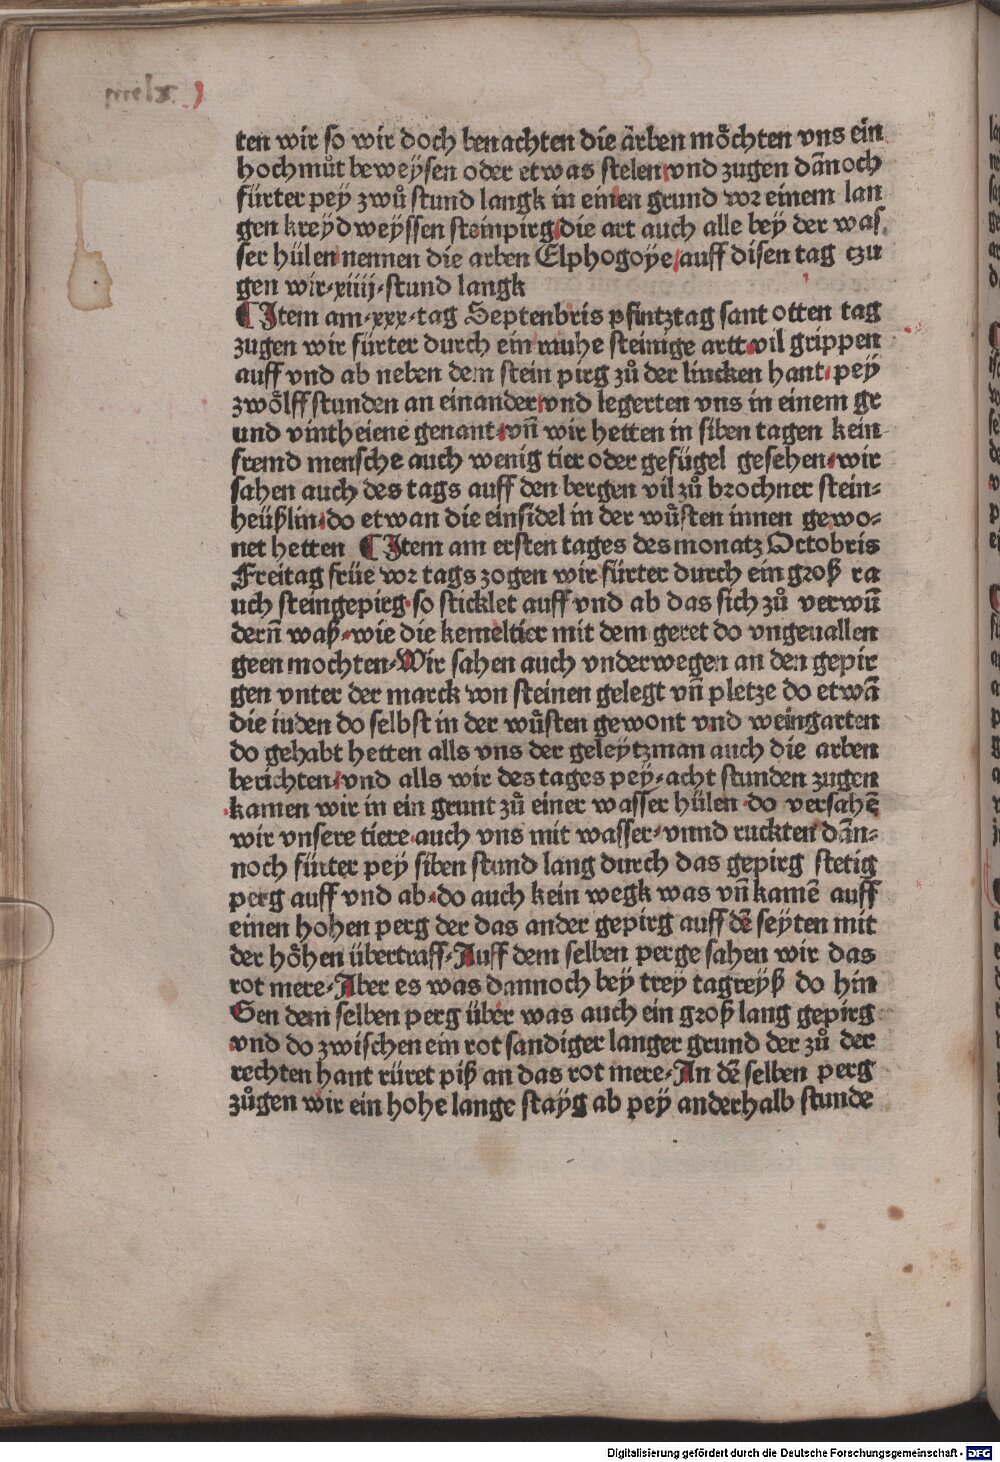 ten wir so wir doch benachten die ārben moͤchten vns ein
hochmuͦt beweysen oder etwas stelen vnd zugen dān̄och
fürter pey zwuͦ stund langk in einen grund vor einem lan
gen kreydweyssen steinpirg die art auch alle bey der was
ser hülen nennen die arben Elphogoÿe auff disen tag czu
gen wir·xiiij·stund langk
¶ Item am·xxx·tag Septenbris pfintztag sant otten tag
zugen wir fürter durch ein rauhe steinige artt vil grippen
auff vnd ab neben dem stein pirg zuͦ der lincken hant·pey
zwoͤlff stunden an einander vnd legerten vns in einem gr
und vintheiene genant·vn̄ wir hetten in siben tagen kein
fremd mensche auch wenig tier oder gefügel gesehen·wir
sahen auch des tags auff den bergen vil zuͦ brochner stein⸗
heüßlin·do etwan die einsidel in der wuͤsten innen gewo⸗
net hetten ¶ Item am ersten tages des monatz Octobris
Freitag früe vor tags zogen wir fürter durch ein groß ra
uch steingepirg·so sticklet auff vnd ab das sich zuͦ verwū
dern̄ waß·wie die kemeltier mit dem geret do vngeuallen
geen mochten·Wir sahen auch vnderwegen an den gepir
gen vnter der marck von steinen gelegt vn̄ pletze do etwā
die iuden do selbst in der wuͤsten gewont vnd weingarten
do gehabt hetten alls vns der geleytzman auch die arben
berichten·vnd alls wir des tages pey·acht stunden zugen
kamen wir in ein grunt zuͦ einer wasser hülen·do versahē
wir vnsere tiere·auch vns mit wasser·vnnd ruckten dān⸗
noch fürter pey siben stund lang durch das gepirg stetig
perg auff vnd ab·do auch kein wegk was vn̄ kamē auff
einen hohen perg der das ander gepirg auff dē seyten mit
der hoͤhen übertraff·Auff dem selben perge sahen wir das
rot mere·Aber es was dannoch bey trey tagreyß do hin
Gen dem selben perg über was auch ein groß lang gepirg
vnd do zwischen ein rot sandiger langer grund der zuͦ der
rechten hant rüret piß an das rot mere·An dē selben perg
zuͦgen wir ein hohe lange stayg ab pey anderhalb stunde
Digitalisierung gefördert durch die Deutsche Forschungsgemeinschaft - DFG